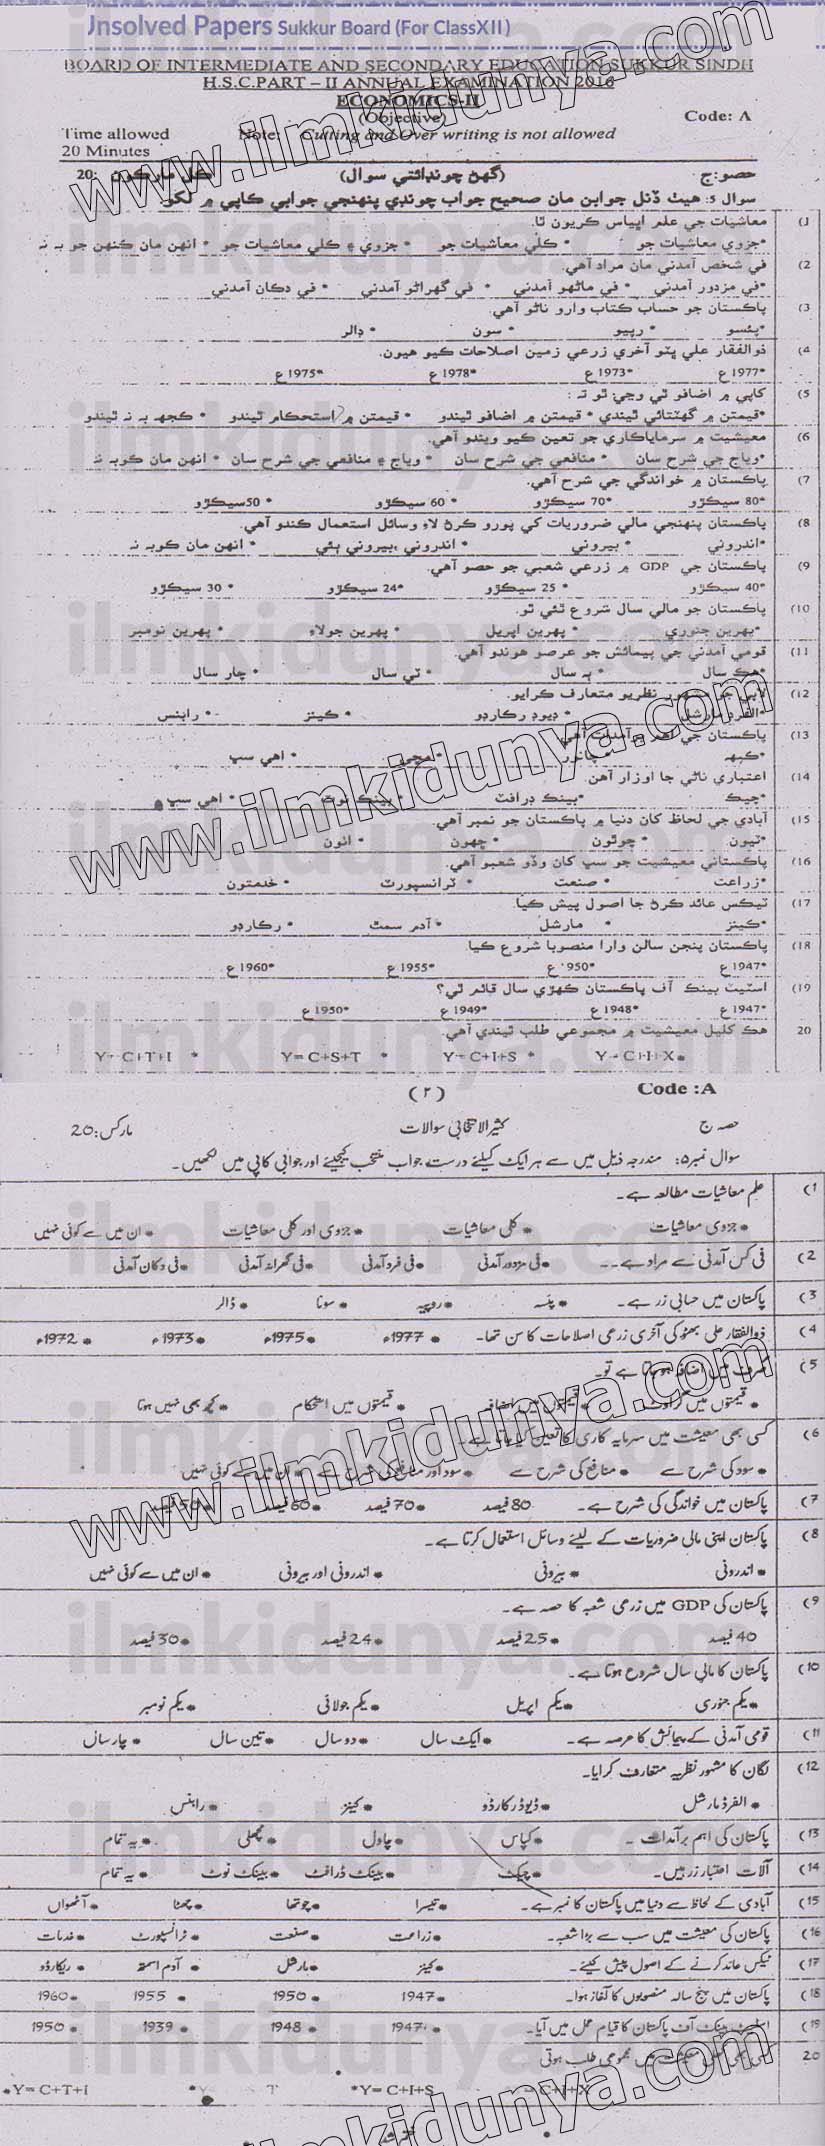 Unsolved Papers Sukkur Board (For ClassXII)
BOARD OF INTERMEDIATE AND SECONDARY EDUCATION SUKKUR SINDH
H.S.C.PART – II ANNUAL EXAMINATION 2016
ECONOMICS-II
(Objective)
Code: A
Time allowed Note: Cutting and Over writing is not allowed
20 Minutes
حصو: ج (گھڻ چونڊائتي سوال) ڪل مارڪون :20
سوال 5: هيٺ ڏنل جوابن مان صحيح جواب چونڊي پنهنجي جوابي ڪاپي ۾ لکو.
1) معاشيات جي علم اڀياس ڪريون ٿا.
*جزوي معاشيات جو * ڪلي معاشيات جو * جزوي ۽ ڪلي معاشيات جو * انهن مان ڪنهن جو به نہ
2) في شخص آمدني مان مراد آهي.
*في مزدور آمدني * في ماڻهو آمدني * في گهراڻو آمدني * في دڪان آمدني
3) پاڪستان جو حساب ڪتاب وارو ناڻو آهي.
*پئسو * رپيو * سون * ڊالر
4) ذوالفقار علي ڀٽو آخري زرعي زمين اصلاحات ڪيو هيون.
*1977ع *1973ع *1978ع *1975ع
5) ڪاپي ۾ اضافو ٿي وڃي ٿو تہ :
*قيمتن ۾ گهٽتائي ٿيندي * قيمتن ۾ اضافو ٿيندو * قيمتن ۾ استحڪام ٿيندو * ڪجهہ به نہ ٿيندو
6) معيشيت ۾ سرمايا ڪاري جو تعين ڪيو ويندو آهي.
*وياج جي شرح سان * منافعي جي شرح سان * وياج ۽ منافعي جي شرح سان * انهن مان ڪوبہ نہ
7) پاڪستان ۾ خواندگي جي شرح آهي.
*80 سيڪڙو *70 سيڪڙو * 60 سيڪڙو * 50سيڪڙو
8) پاڪستان پنهنجي مالي ضروريات کي پورو ڪرڻ لاءِ وسائل استعمال ڪندو آهي.
*اندروني * بيروني * اندروني ،بيروني ٻئي * انهن مان ڪوبہ نہ
9) پاڪستان جي GDP ۾ زرعي شعبي جو حصو آهي.
*40 سيڪڙو * 25 سيڪڙو *24 سيڪڙو * 30 سيڪڙو
10) پاڪستان جو مالي سال شروع ٿئي ٿو.
*پهرين جنوري * پهرين اپريل * پهرين جولاءِ * پهرين نومبر
11) قومي آمدني جي پيمائش جو عرصو هوندو آهي.
*هڪ سال * ٻہ سال * ٽي سال * چار سال
12) نظريو متعارف ڪرايو.
*الفرڊ مارشل * ڊيوڊ رڪارڊو * ڪينز * رابنس
13) پاڪستان جي
*ڪپهہ * اهي سڀ
14) اعتباري ناڻي جا اوزار آهن.
*چيڪ *بينڪ ڊرافٽ * بينڪ نوٽ * اهي سڀ
15) آبادي جي لحاظ کان دنيا ۾ پاڪستان جو نمبر آهي.
*ٽيون * چوٿون * ڇهون * اٺون
16) پاڪستاني معيشيت جو سڀ کان وڏو شعبو آهي.
*زراعت * صنعت * ٽرانسپورٽ * خدمتون
17) ٽيڪس عائد ڪرڻ جا اصول پيش ڪيا.
*ڪينز * مارشل * آدم سمٿ * رڪارڊو
18) پاڪستان پنجن سالن وارا منصوبا شروع ڪيا.
*1947ع *950 ع *1955ع *1960ع
19) اسٽيٽ بينڪ آف پاڪستان ڪهڙي سال قائم ٿي؟
*1947ع *1948ع *1949ع *1950ع
20 هڪ کليل معيشيت ۾ مجموعي طلب ٿيندي آهي.
Y = C+I+X * Y= C+I+S * Y= C+S+T * Y= C+T+I *
(۲) Code :A
حصہ ج کثیر الانتخابی سوالات مارکس:20
سوال نمبر۵: مندرجہ ذیل میں سے ہر ایک کیلئے درست جواب منتخب کیجیئے اور جوابی کاپی میں لکھیں۔
1) علم معاشیات مطالعہ ہے۔
* جزوی معاشیات * کلی معاشیات * جزوی اور کلی معاشیات * ان میں سے کوئی نہیں
2) فی کس آمدنی سے مراد ہے۔۔ *فی مزدور آمدنی *فی فرد آمدنی *فی گھرانہ آمدنی *فی دکان آمدنی
3) پاکستان میں حسابی زر ہے۔ *پیسہ *روپیہ * سونا * ڈالر
4) ذوالفقار علی بھٹو کی آخری زرعی اصلاحات کا سن تھا۔ *1977ء *1975ء *1973ء *1972ء
5) صرف میں اضافہ ہو جاتا ہے تو۔
* قیمتوں میں گراوٹ * قیمتوں میں اضافہ * قیمتوں میں استحکام * کچھ بھی نہیں ہوتا
6) کسی بھی معیشت میں سرمایہ کاری کا تعین کیا جاتا ہے۔
* سود کی شرح سے * منافع کی شرح سے * سود اور منافع کی شرح سے * ان میں سے کوئی نہیں
7) پاکستان میں خواندگی کی شرح ہے۔ 80 فیصد *70 فیصد *60 فیصد *50 فیصد
8) پاکستان اپنی مالی ضروریات کے لیئے وسائل استعمال کرتا ہے۔
* اندرونی * بیرونی * اندرونی اور بیرونی * ان میں سے کوئی نہیں
9) پاکستان کی GDP میں زرعی شعبہ کا حصہ ہے۔
40 فیصد *25 فیصد *24 فیصد *30 فیصد
10) پاکستان کا مالی سال شروع ہوتا ہے۔
*یکم جنوری *یکم اپریل *یکم جولائی *یکم نومبر
11) قومی آمدنی کے پیمائش کا عرصہ ہے۔ *ایک سال *دو سال *تین سال *چار سال
12) لگان کا مشہور نظریہ متعارف کرایا۔
* الفرڈ مارشل *ڈیوڈ رکارڈو *کینز * رابنس
13) پاکستان کی اہم برآمدات ۔ *کپاس *چاول *مچھلی *یہ تمام
14) آلات اعتبار زر ہیں۔ *چیک *بینک ڈرافٹ *بینک نوٹ *یہ تمام
15) آبادی کے لحاظ سے دنیا میں پاکستان کا نمبر ہے۔ *تیسرا *چوتھا *چھٹا *آٹھواں
16) پاکستان کی معیشت میں سب سے بڑا شعبہ۔ *زراعت *صنعت *ٹرانسپورٹ *خدمات
17) ٹیکس عائد کرنے کے اصول پیش کیئے۔ *کینز *مارشل * آدم اسمتھ * ریکارڈو
18) پاکستان میں پنج سالہ منصوبوں کا آغاز ہوا۔ 1947* 1950* 1955* 1960*
19) اسٹیٹ بینک آف پاکستان کا قیام عمل میں آیا۔ 1947* 1948* 1939* 1950*
20 معیشت میں مجموعی طلب ہوتی
= C+I+X *Y= C+I+S T *Y= C+T+I
www.ilmkidunya.com
www.ilmkidunya.com
www.ilmkidunya.com